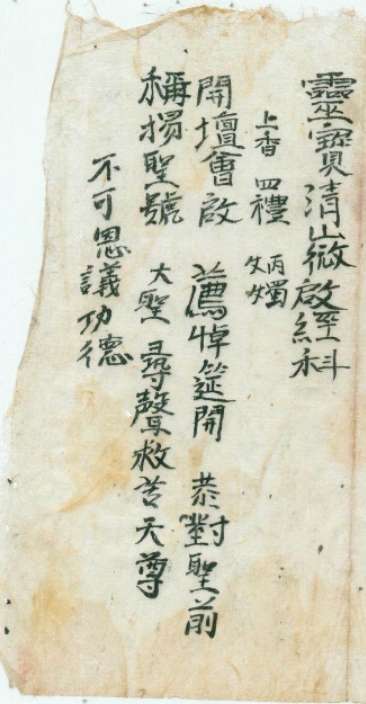 靈寶清微啟經科
上香 四禮 炳燭
開壇會啟 薦悼筵開 恭對聖前
稱揚聖號 大聖尋聲救苦天尊
不可思議功德